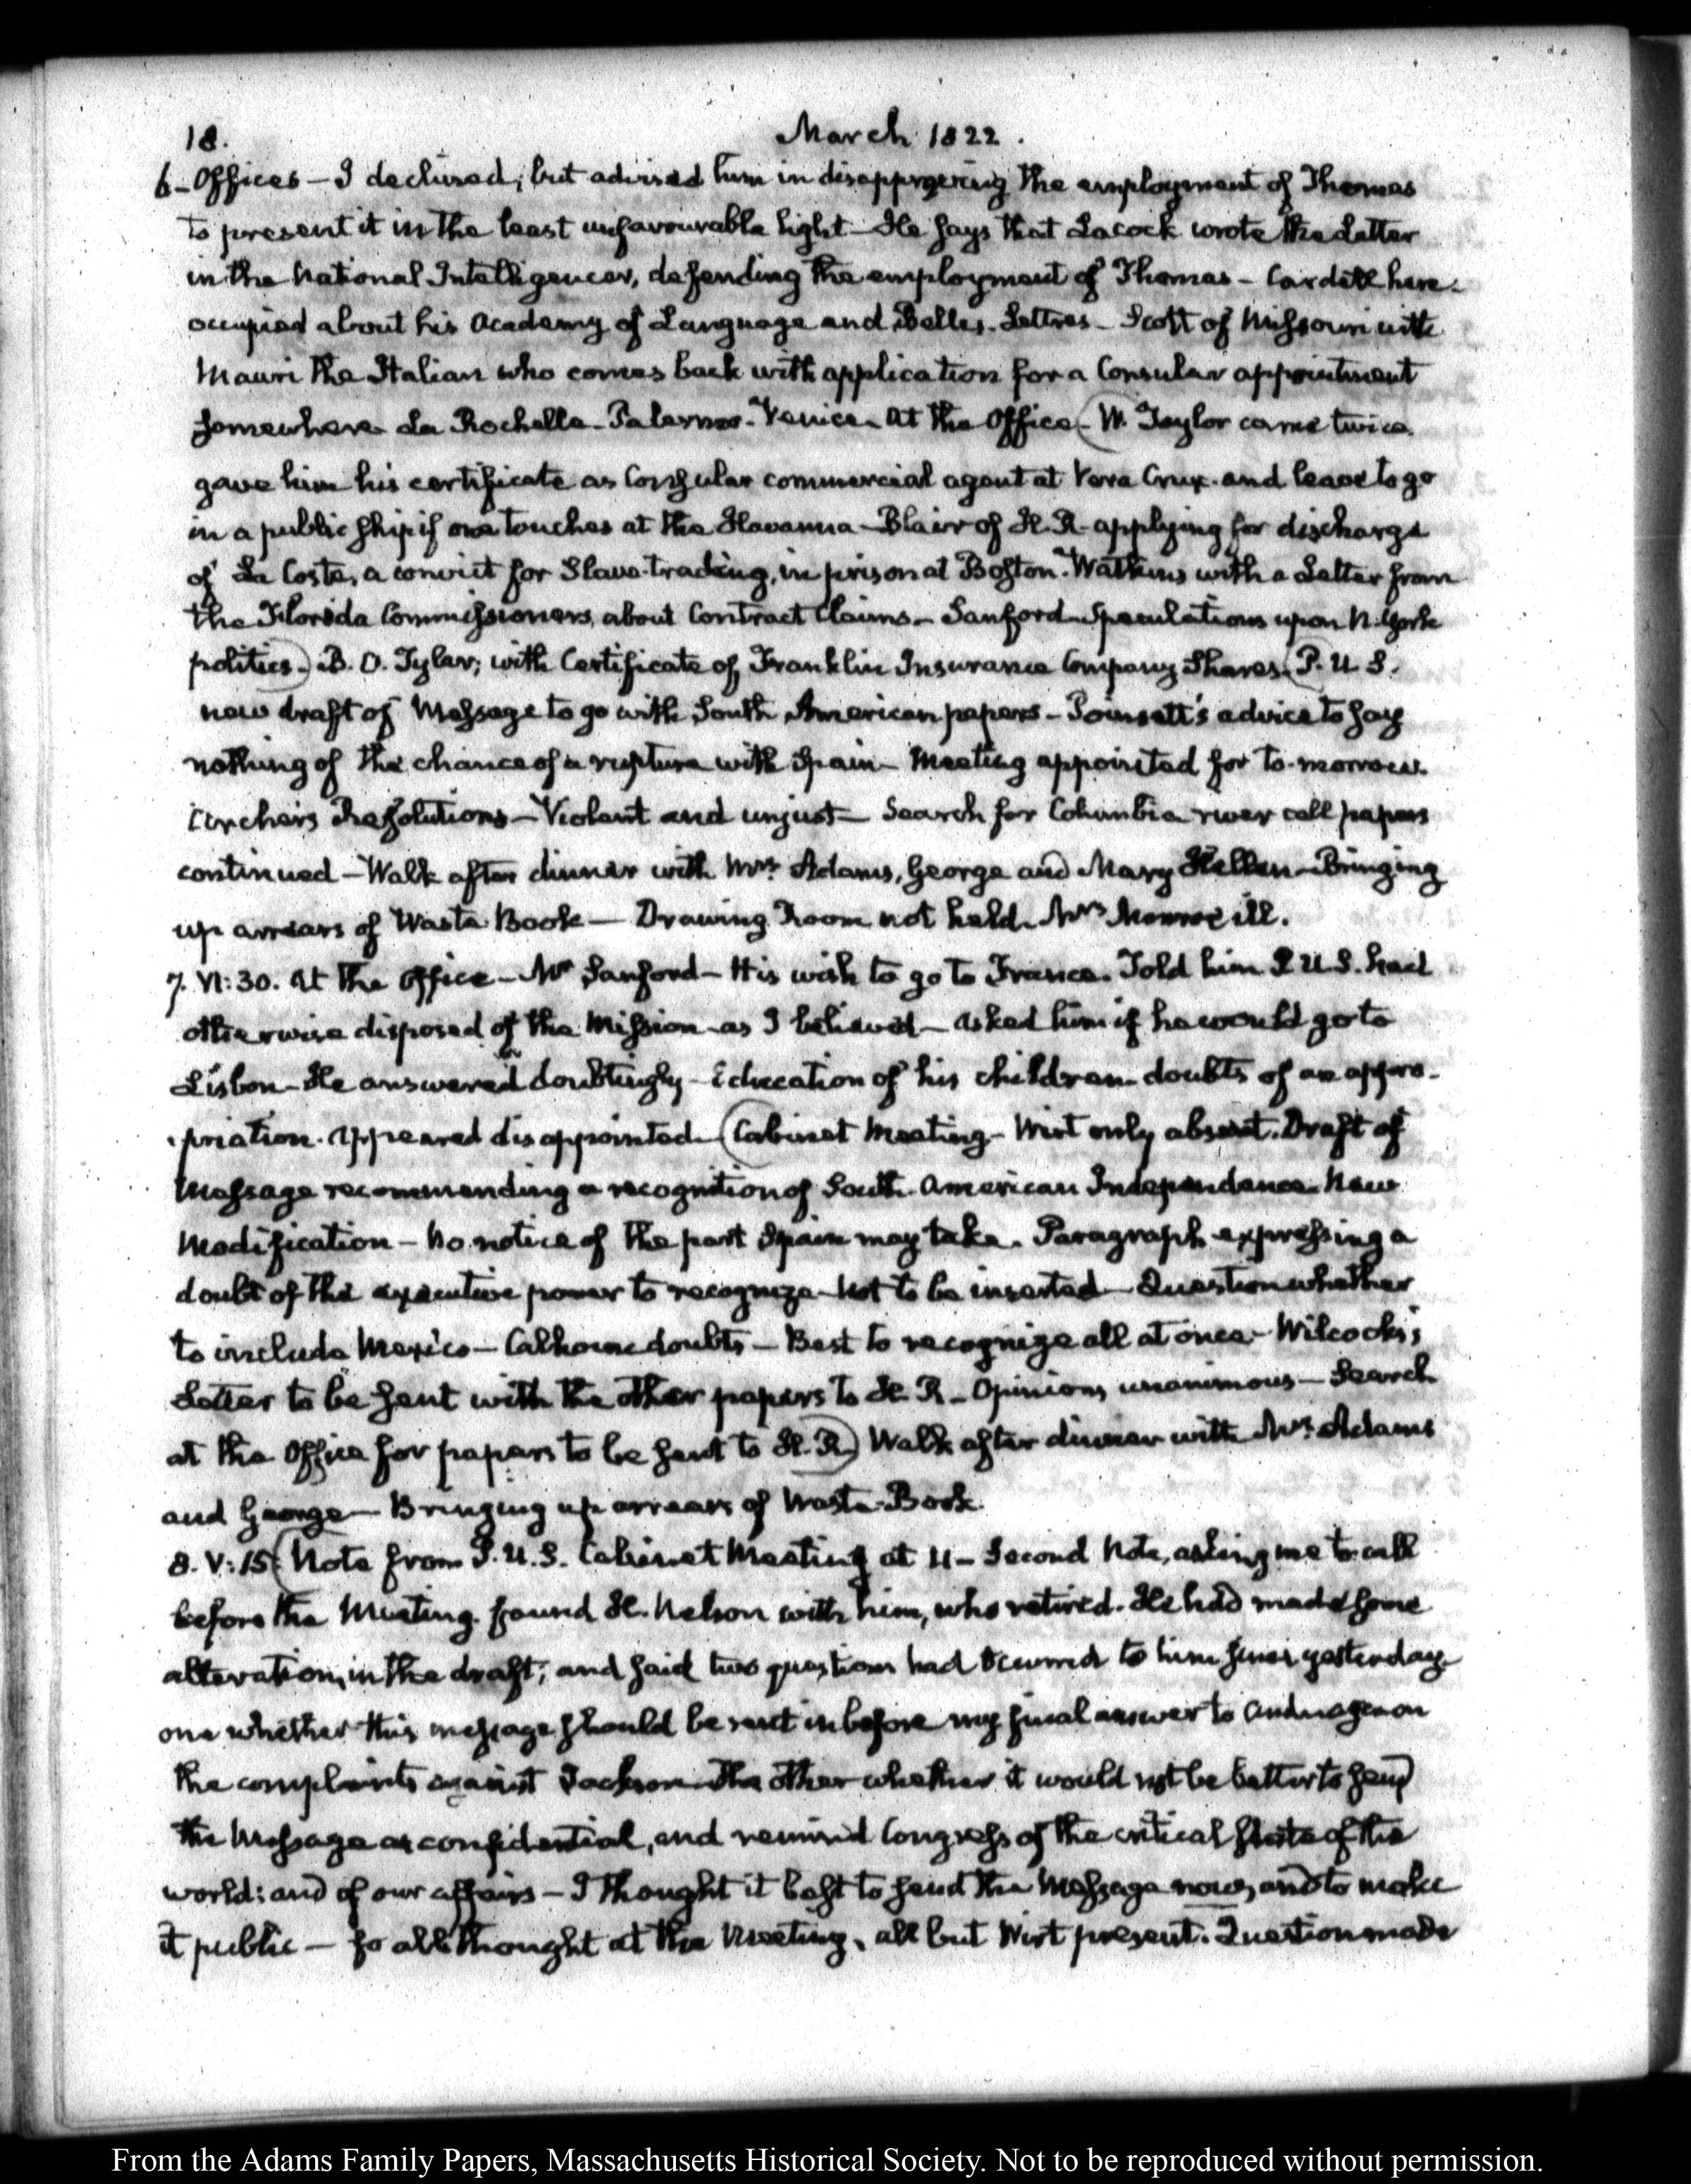 18. March 1822.
6 - Offices - I declined; but advised him in disapproving the employment of Thomas
to present it in the least unfavourable light - He says that Lacock wrote the Letter
in the National Intelligencer, defending the employment of Thomas - Cardell here -
occupied about his Academy of Language and Belles-Lettres - Scott of Missouri with
Mauri the Italian who comes back with application for a Consular appointment
somewhere La Rochelle - Palermo - Venice - At the Office (W. Taylor came twice.
gave him his certificate as Consular commercial agent at Vera Cruz. and leave to go
in a public ship if one touches at the Havanna - Blair of H. R. applying for discharge
of La Coste, a convict for Slave-trading, in prison at Boston. Watkins with a Letter from
the Florida Commissioners, about Contract Claims - Sanford - Speculations upon N. York
politics.) B. O. Tyler; with Certificate of Franklin Insurance Company Shares. (P. U. S.
new draft of Message to go with South American papers - Poinsett's advice to say
nothing of the chance of a rupture with Spain - Meeting appointed for to-morrow.
Archer's Resolutions - Violent and unjust - Search for Columbia river call papers
continued - Walk after dinner with Mrs. Adams, George and Mary Hellen - Bringing
up arrears of Waste Book - Drawing Room not held. Mrs Monroe ill.
7. VI:30. At the Office - Mr Sanford - His wish to go to France. Told him P. U. S. had
otherwise disposed of the Mission as I believed - asked him if he would go to
Lisbon - He answered doubtingly - Education of his children - doubts of an appro-
priation. Appeared disappointed - (Cabinet Meeting - Wirt only absent. Draft of
Message recommending a recognition of South American Independence. New
Modification - No notice of the part Spain may take. Paragraph expressing a
doubt of the executive power to recognize - Not to be inserted - Question whether
to include Mexico - Calhoun doubts - Best to recognize all at once - Wilcocks's
Letter to be sent with the other papers to H. R - Opinions unanimous - Search
at the Office for papers to be sent to H. R.) Walk after dinner with Mrs. Adams
and George - Bringing up arrears of Waste-Book.
8. V:15. (Note from P. U. S. Cabinet Meeting at 11 - Second Note, asking me to call
before the Meeting. found H. Nelson with him, who retired. He had made some
alterations, in the draft; and said two questions had occurred to him since yesterday.
one whether this message should be sent in before my final answer to Anduaga on
the complaints against Jackson. The other whether it would not be better to send
the Message as confidential, and remind Congress of the critical state of the
world; and of our affairs - I thought it best to send the Message now, and to make
it public - so all thought at the Meeting, all but Wirt present. Question made
From the Adams Family Papers, Massachusetts Historical Society. Not to be reproduced without permission.